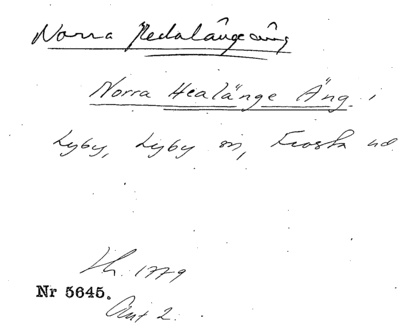 Norra Hedalångeäng
Norra Healänge Äng i
Lyby, Lyby sn, Frosta hd
Lh. 1779
Nr 5645.
Akt 2.